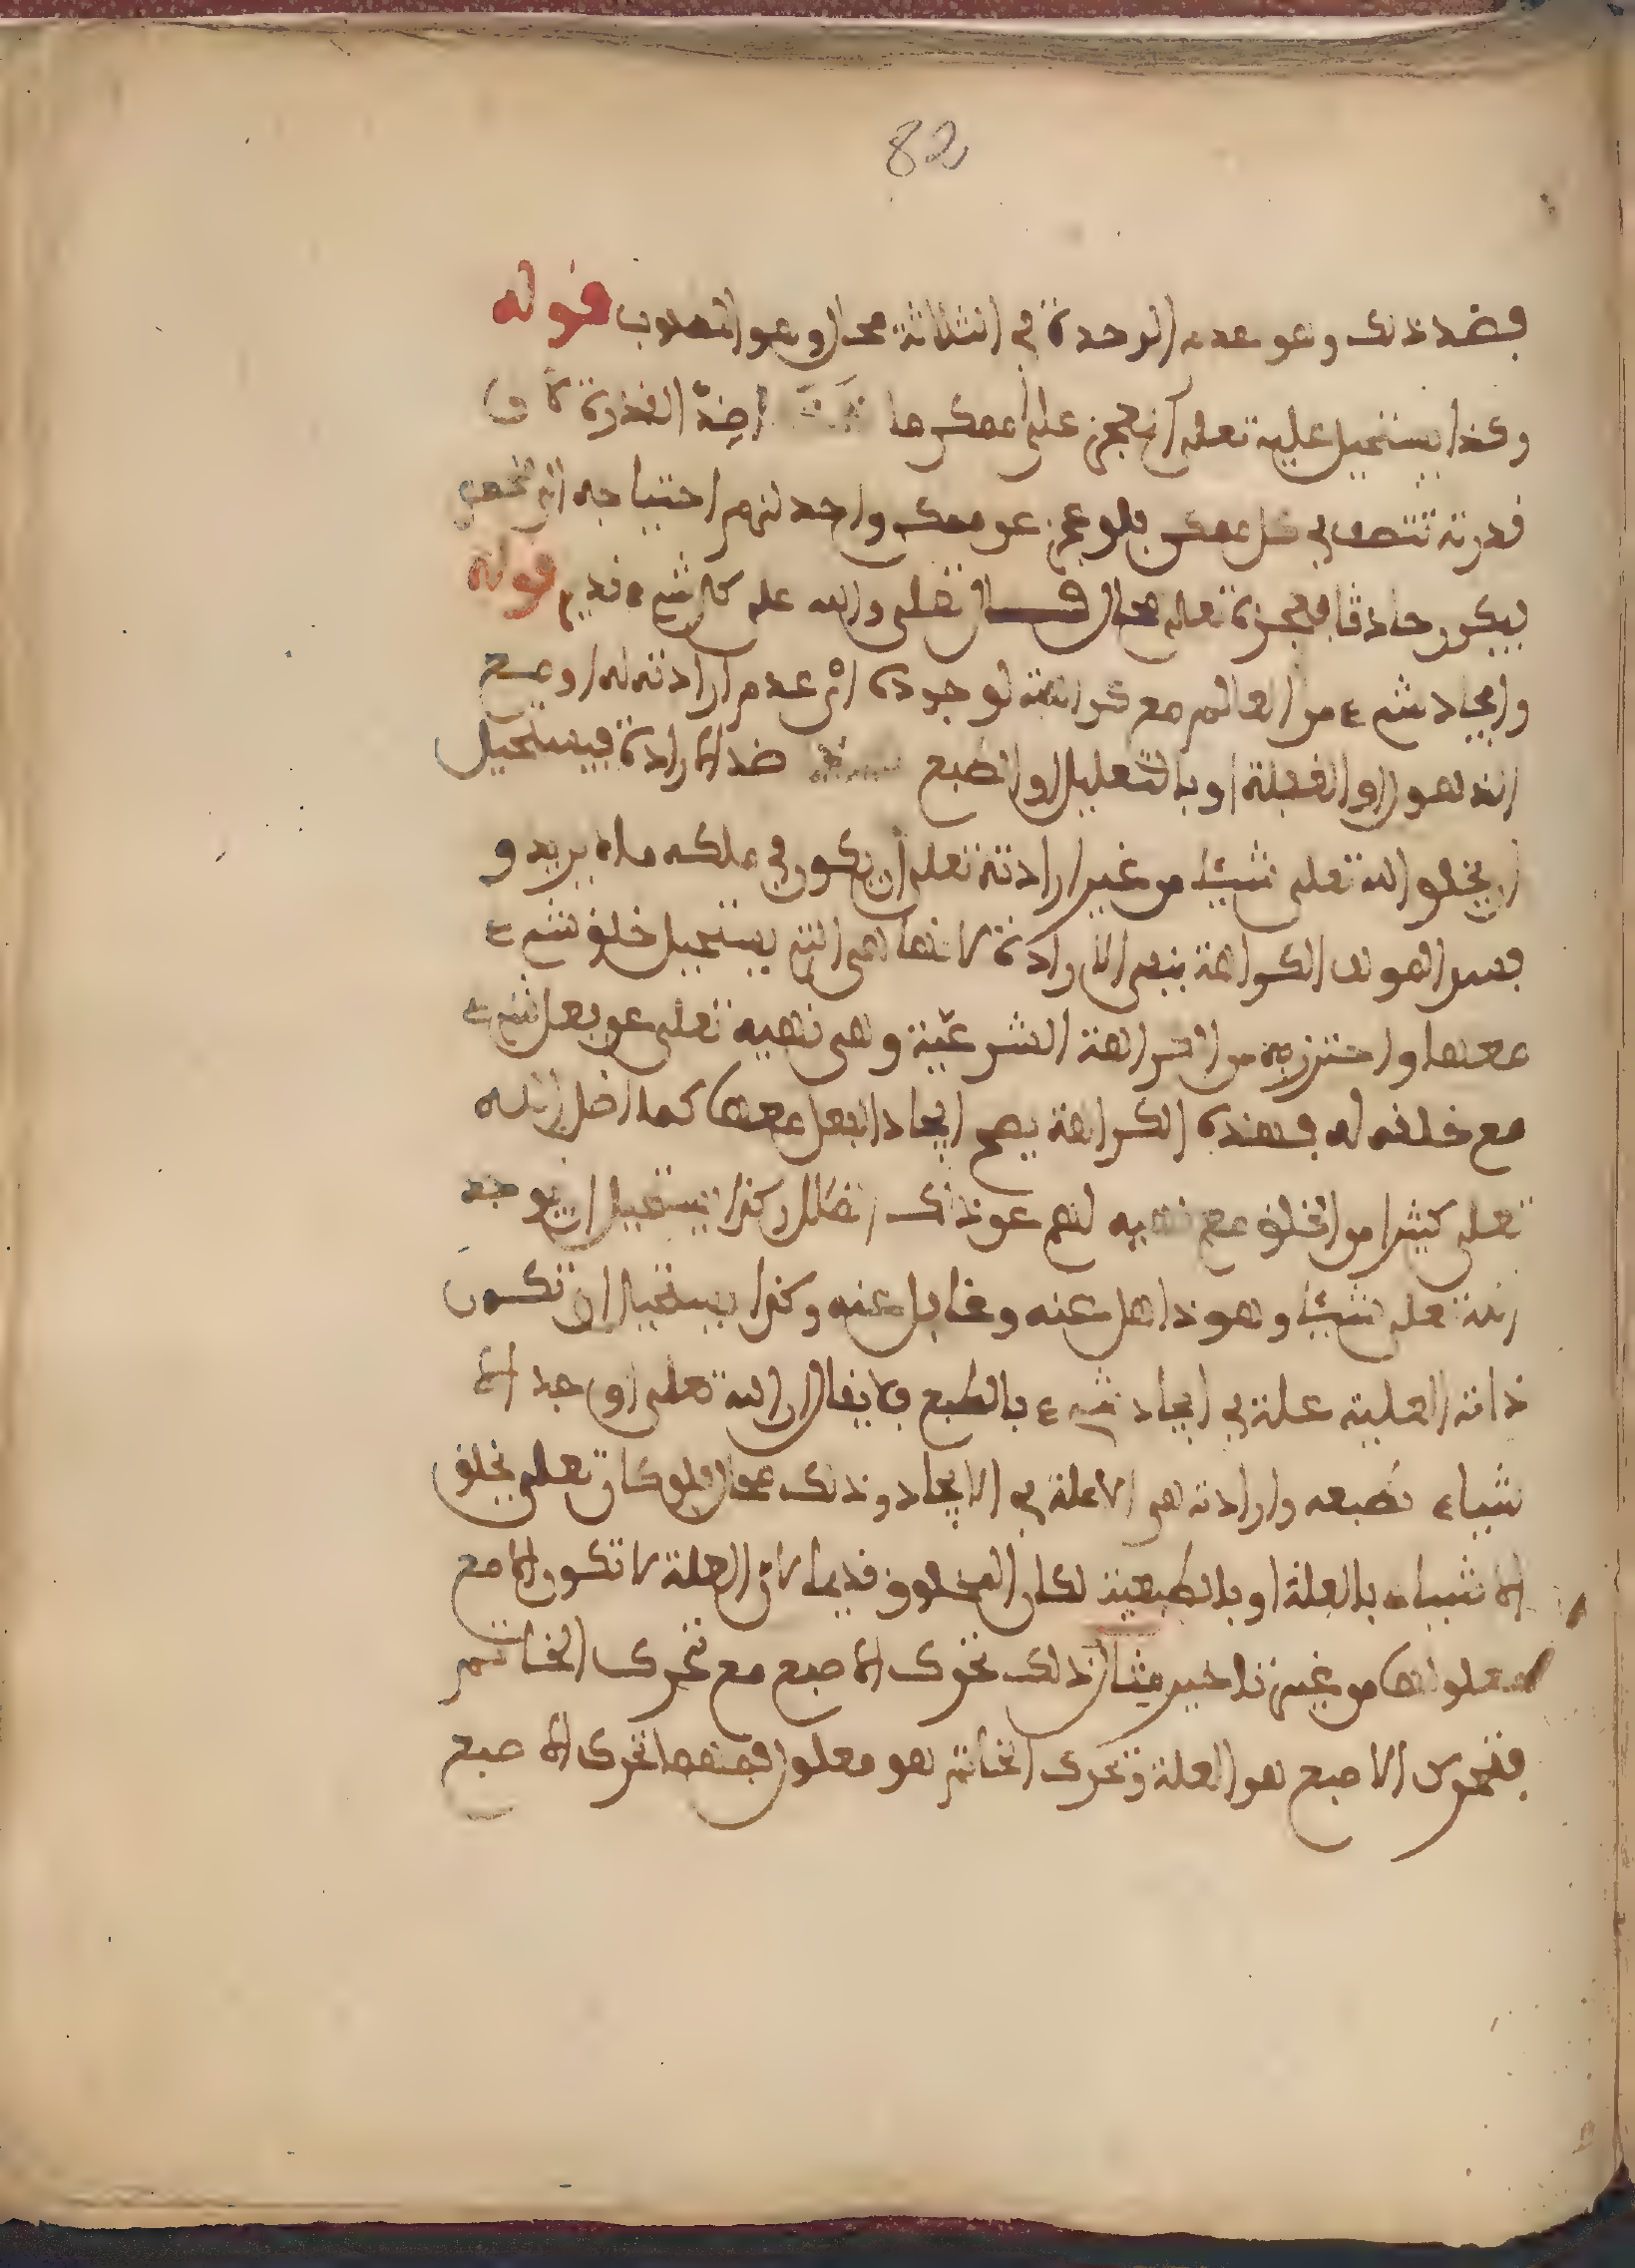 82
فضد ذلك وهو عدم الوحدة في الثلاثة محال وهو المطلوب قوله
وكذا يستحيل عليه تعلى العجز على ممكن ما ضد القدرة لان
قدرته تتصف في كل ممكن فلو عجز عن ممكن واحد لزم احتياجه الى مخصص
فيكون حادثا فعجزه تعلى محال قال تعلى والله على كل شيء قدير قوله
وايجاد شيء من العالم مع كراهته لوجوده اي عدم ارادته له او مع
الذهول او الغفلة او بالتعليل او الطبع ضد الارادة فيستحيل
ان يخلق الله تعلى شيئا من غير ارادته تعلى ان يكون في ملكه ما لا يريد و
فسر المولف الكراهة بنفي الارادة لانها هي التي يستحيل خلق شيء
معها واحترز به من الكراهة الشرعية وهي نهيه تعلى عن فعل شيء
مع خلقه له فهذه الكراهة يصح ايجاد الفعل معها كما اضل الله
تعلى كثيرا من الخلق مع نهيه لهم عن ذلك الضلال وكذا يستحيل ان يوجد
الله تعلى شيئا وهو ذاهل عنه وغافل عنه وكذا يستحيل ان تكون
ذاته العلية علة في ايجاد شيء بالطبع فلا يقال ان الله تعلى اوجد الا
شياء بطبعه وارادته هي الاعلة في الايجاد وذلك محال فلو كان تعلى يخلق
الاشياء بالعلة او بالطبيعة لكان المخلوق قديما لان العلة لا تكون الا مع
معلولها من غير تاخير مثال ذلك تحرك الاصبع مع تحرك الخاتم
فتحرك الاصبع هو العلة وتحرك الخاتم هو معلول فمهما تحرك الاصبع